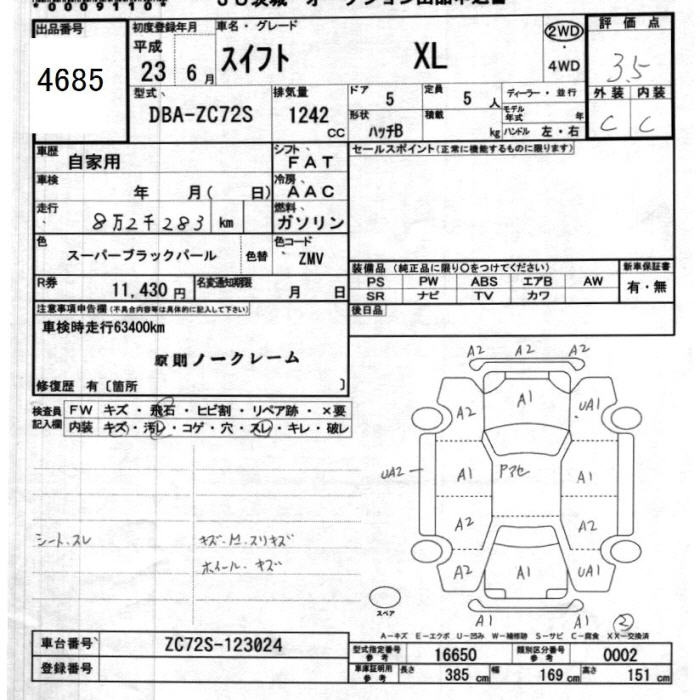 出品番号
4685
初度登録年月
平成
23 6月
車名・グレード
スイフト XL
2WD
・
4WD
評価点
3.5
型式
DBA-ZC72S
排気量
1242
CC
ドア
5
定員
5 人
ディーラー・並行
モデル
年式 年
形状
ハッチB
積載
kg
ハンドル 左・右
外装 内装
C C
車歴
自家用
シフト
FAT
車検
年 月( 日)
冷房
AAC
走行
8万2千283 km
燃料
ガソリン
色
スーパーブラックパール
色替
色コード
ZMV
R券
11,430 円
名変通知期限
月 日
セールスポイント(正常に機能するものに限ります)
装備品 (純正品に限り○をつけてください)
新車保証書
PS PW ABS エアB AW
SR ナビ TV カワ
有・無
後日品
注意事項申告欄(不具合内容等は具体的に記入して下さい)
車検時走行63400km
原則ノークレーム
修復歴 有〔箇所 〕
検査員
記入欄
FW キズ・飛石・ヒビ割・リペア跡・×要
内装 キズ・汚レ・コゲ・穴・スレ・キレ・破レ
シート.スレ
キズ.M.スリキズ
ホイール.キズ
A2 A2 A2
A2 A1 UA1
UA2 A1 Pアセ A1
A2 A2
A2 A1 UA1
A1 A1 2
スペア
A-キズ E-エクボ U-凹み W-補修跡 S-サビ C-腐食 XX-交換済
車台番号 ZC72S-123024
登録番号
型式指定番号
参考
16650
類別区分番号
参考
0002
車庫証明用
参考
長さ 385 cm 幅 169 cm 高さ 151 cm